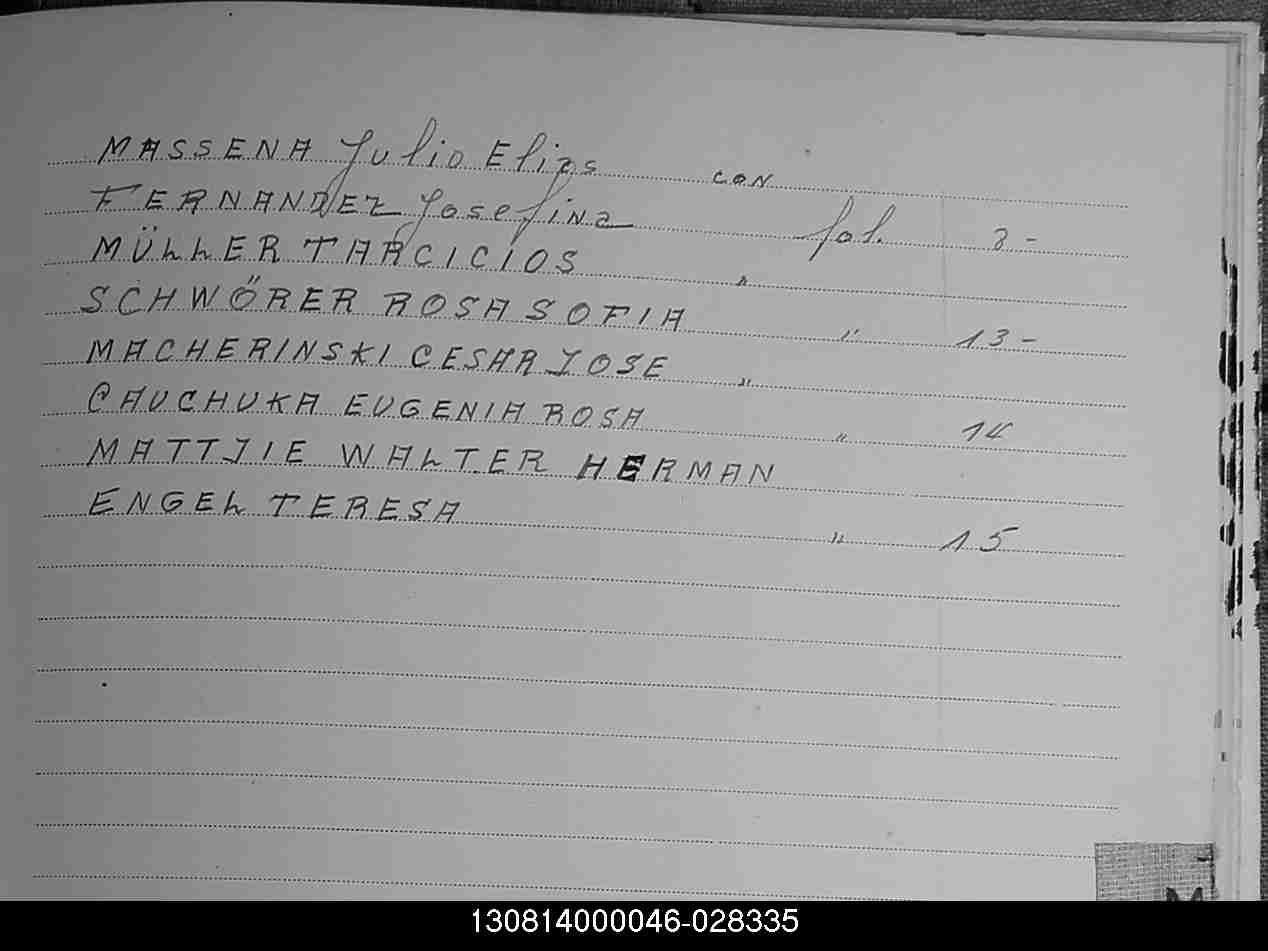 MASSENA Julio Elias con
FERNANDEZ Josefina fol. 3 -
MÜLLER TARCICIOS "
SCHWÖRER ROSA SOFIA " 13 -
MACHERINSKI CESAR JOSE "
CAUCHUKA EUGENIA ROSA " 14
MATTJIE WALTER HERMAN
ENGEL TERESA " 15
M
130814000046-028335